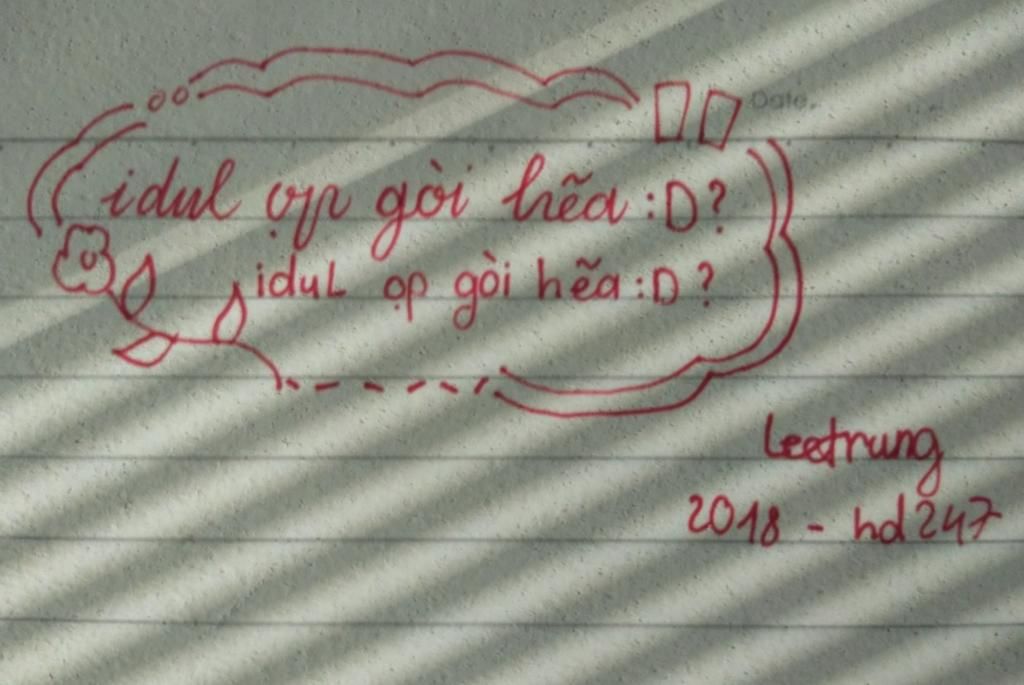 Date.
idul ợp gòi hẽa :D?
idul ọp gòi hẽa :D ?
Leetrung
2018 - hd247